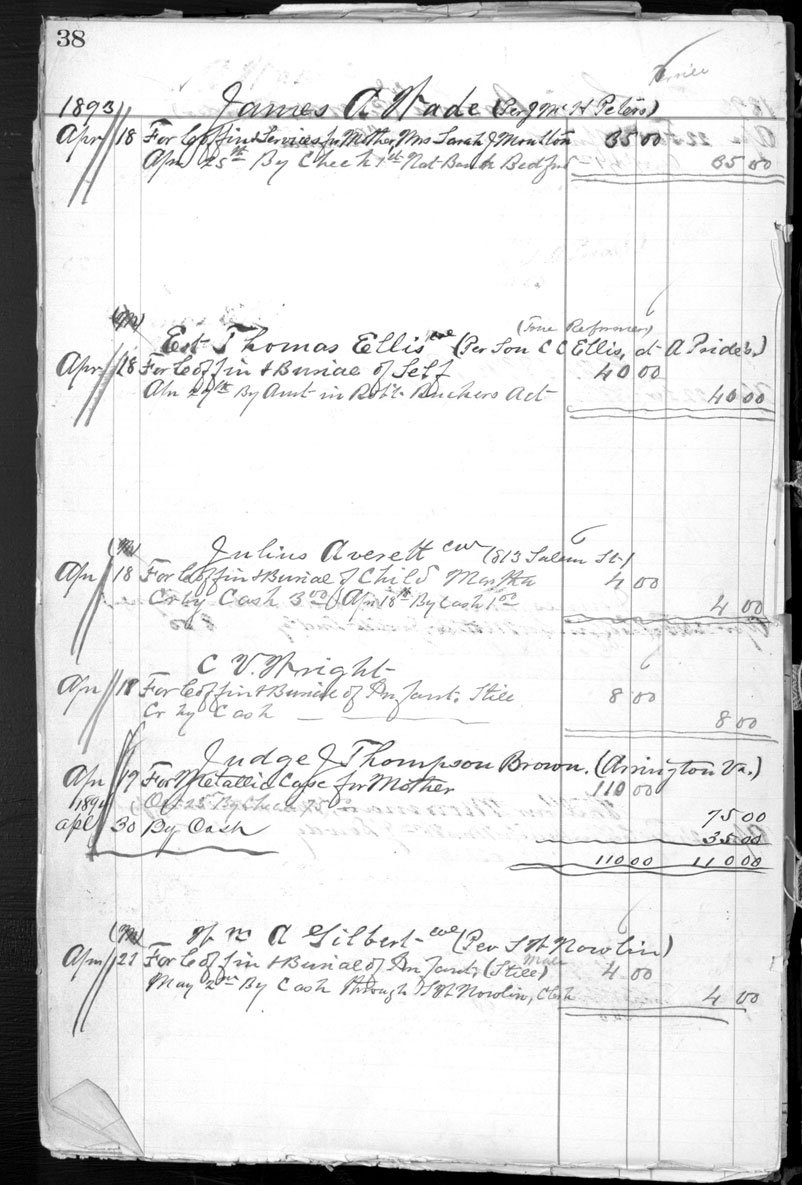 38
1893 James A Wade (Per J Mc H Peters)
Apr 18 For Coffin & Services for Mother, Mrs Sarah J Moulton 35 00
Apr 25th By Check 1st Nat Bank Bedford 35 00
(True Reformers)
Est Thomas Ellis col (Per Son C C Ellis, at A Pride's.)
Apr 18 For Coffin & Burial of Self 40 00
Apr 29th By Amt in Robt Ruckers Act 40 00
Julius Averett col (813 Salem St)
Apr 18 For Coffin & Burial of Child Martha 4 00
Cr by Cash 3 00 / Apr 18th By Cash 1 00 4 00
C V. Wright
Apr 18 For Coffin & Burial of Infant. Still 8 00
Cr by Cash 8 00
Judge J Thompson Brown. (Arrington Va.)
Apr 19 For Metallic Case for Mother 110 00
Oct 25 By Check 75 00
1894
Apl 30 By Cash 35 00
110 00 110 00
Wm A Gilbert col (Per S W Nowlin)
Apr 21 For Coffin & Burial of Infant, (Still) Male 4 00
May 2nd By Cash through S W Nowlin, Clerk 4 00